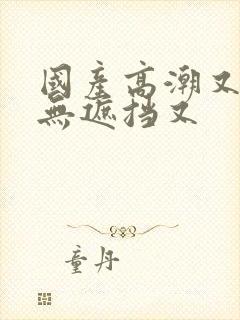 國產高潮又
無遮挡又
童丹